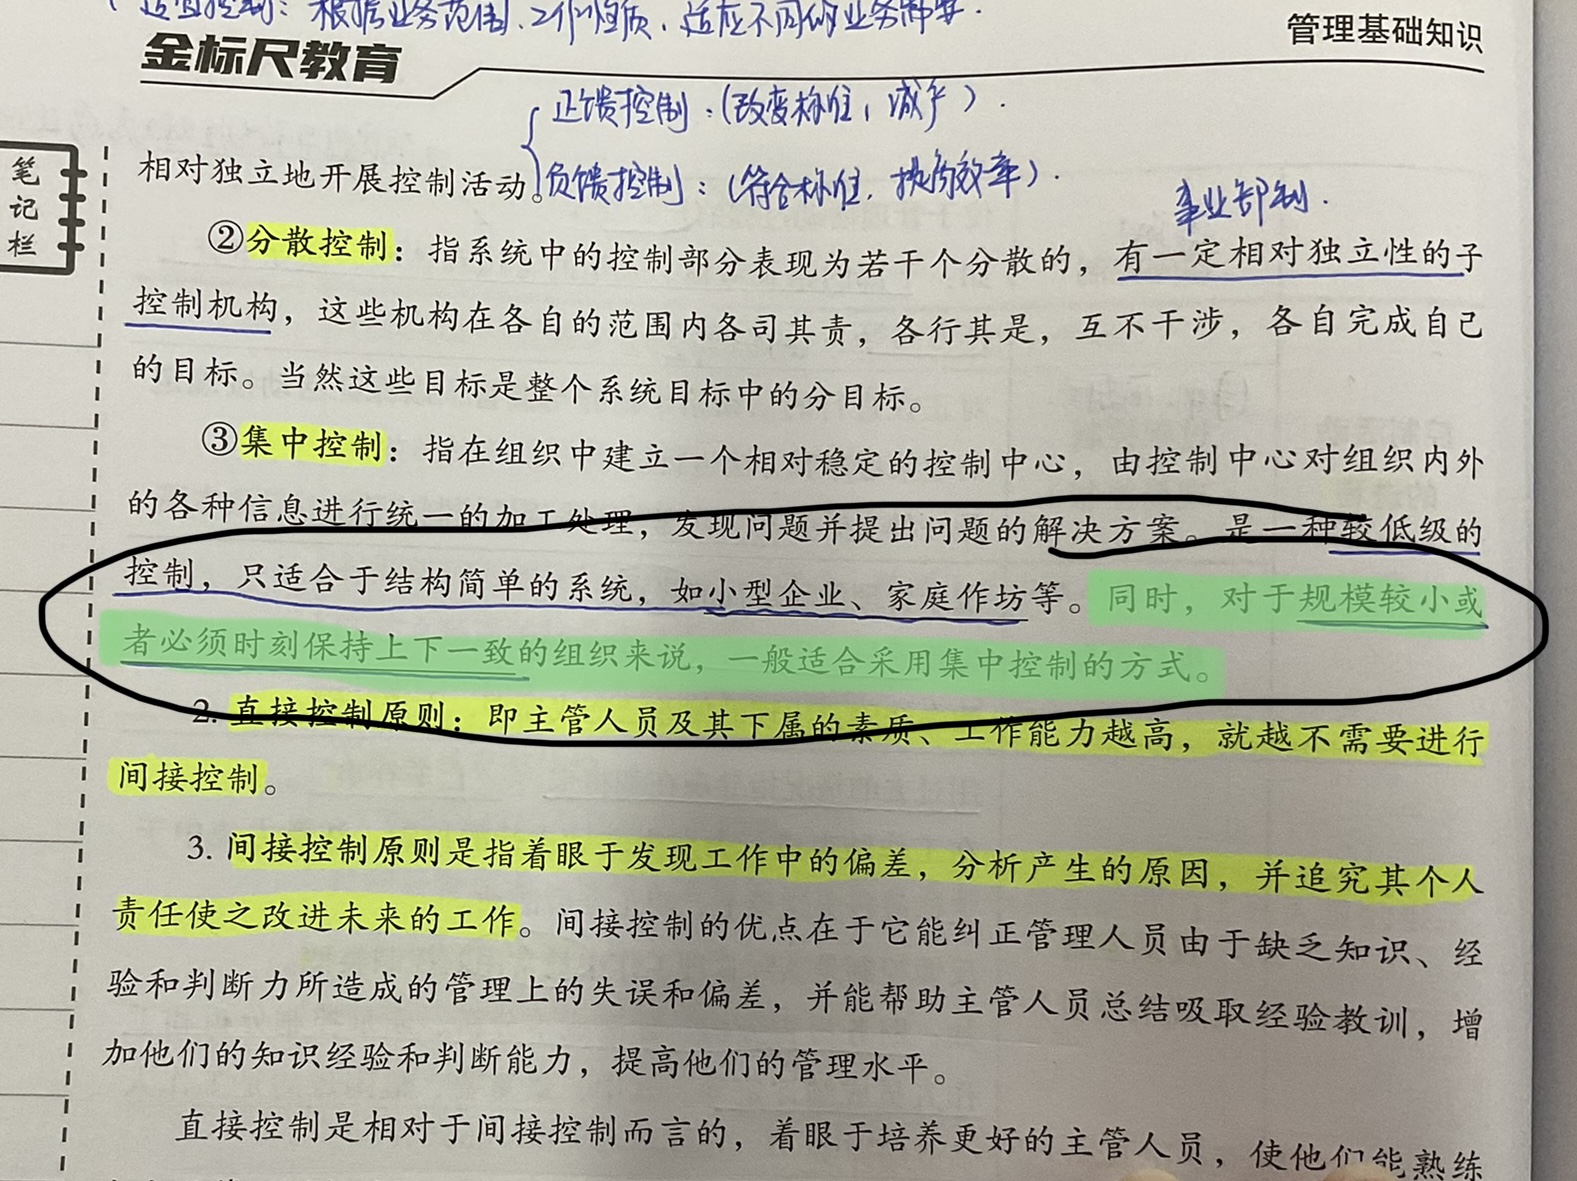 适宜控制：根据业务范围、工作性质，适应不同的业务需要.
金标尺教育
管理基础知识
正馈控制：(改变标准，减产).
笔记栏
相对独立地开展控制活动。
负馈控制：(符合标准，提高效率).
事业部制.
②分散控制：指系统中的控制部分表现为若干个分散的，有一定相对独立性的子
控制机构，这些机构在各自的范围内各司其责，各行其是，互不干涉，各自完成自己
的目标。当然这些目标是整个系统目标中的分目标。
③集中控制：指在组织中建立一个相对稳定的控制中心，由控制中心对组织内外
的各种信息进行统一的加工处理，发现问题并提出问题的解决方案。是一种较低级的
控制，只适合于结构简单的系统，如小型企业、家庭作坊等。同时，对于规模较小或
者必须时刻保持上下一致的组织来说，一般适合采用集中控制的方式。
2. 直接控制原则：即主管人员及其下属的素质、工作能力越高，就越不需要进行
间接控制。
3. 间接控制原则是指着眼于发现工作中的偏差，分析产生的原因，并追究其个人
责任使之改进未来的工作。间接控制的优点在于它能纠正管理人员由于缺乏知识、经
验和判断力所造成的管理上的失误和偏差，并能帮助主管人员总结吸取经验教训，增
加他们的知识经验和判断能力，提高他们的管理水平。
直接控制是相对于间接控制而言的，着眼于培养更好的主管人员，使他们能熟练